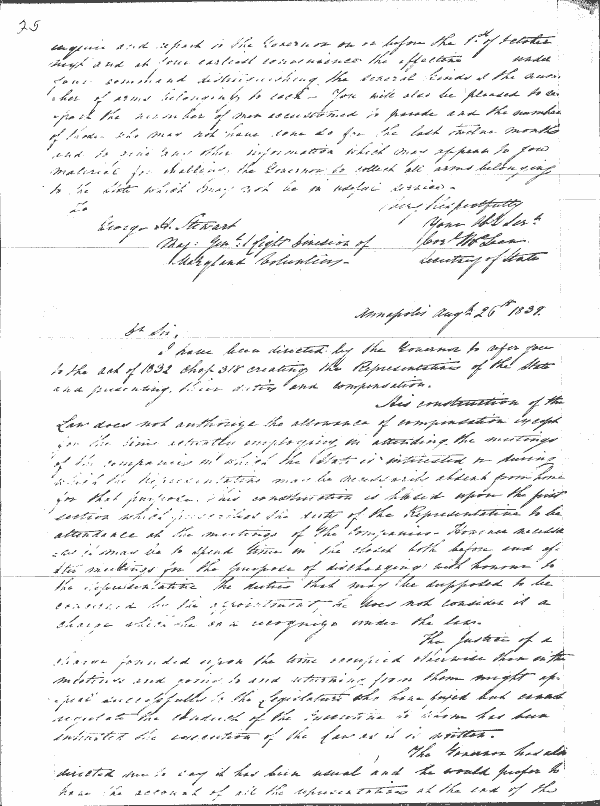 25
enquire and report to the Governor on or before the 1st of October
next and at your earliest convenience the effective under
your command distinguishing the several kinds & the num-
ber of arms belonging to each - You will also be pleased to re-
port the number of men accustomed to parade and the number
of those who may not have done so for the last twelve months
and to give any other information which may appear to you
material for enabling the Governor to collect all arms belonging
to the State which may not be in useful service -
Very Respectfully
To
George H. Stewart
Your Obt Servt
Maj: Genl Light Division of
Cors McLean
Maryland Volunteers -
Secretary of State
Annapolis Augt 26th 1839.
Dr Sir,
I have been directed by the Governor to refer you
to the act of 1832 Chap 318 creating the Representatives of the State
and presenting their duties and compensation.
His construction of the
Law does not authorize the allowance of compensation except
for the time actually employed in attending the meetings
of the companies in which the State is interested or during
which the Representative may be necessarily absent from home
for that purpose. This construction is based upon the first
section which prescribes the duty of the Representative to be
attendance at the meetings of the Companies - However necessa-
-ry it may be to spend time in the closet both before and af-
ter meetings for the purpose of discharging with honour to
the representative the duties that may be supposed to be
concerned by the appointment, he does not consider it a
charge which he can recognize under the law.
The Justice of a
charge founded upon the time occupied otherwise than in the
meetings and going to and returning from them might ap-
peal successfully to the Legislature who have but cannot
regulate the conduct of the Executive to whom has been
intrusted the execution of the Law as it is written.
The Governor has also
directed me to say it has been usual and he would prefer to
have the account of all the representatives at the end of the